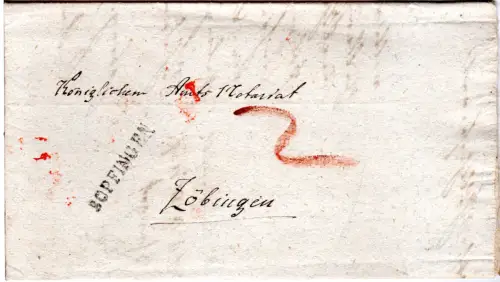 Königlichem Amts Notariat
2
BOPFINGEN
Zöbingen